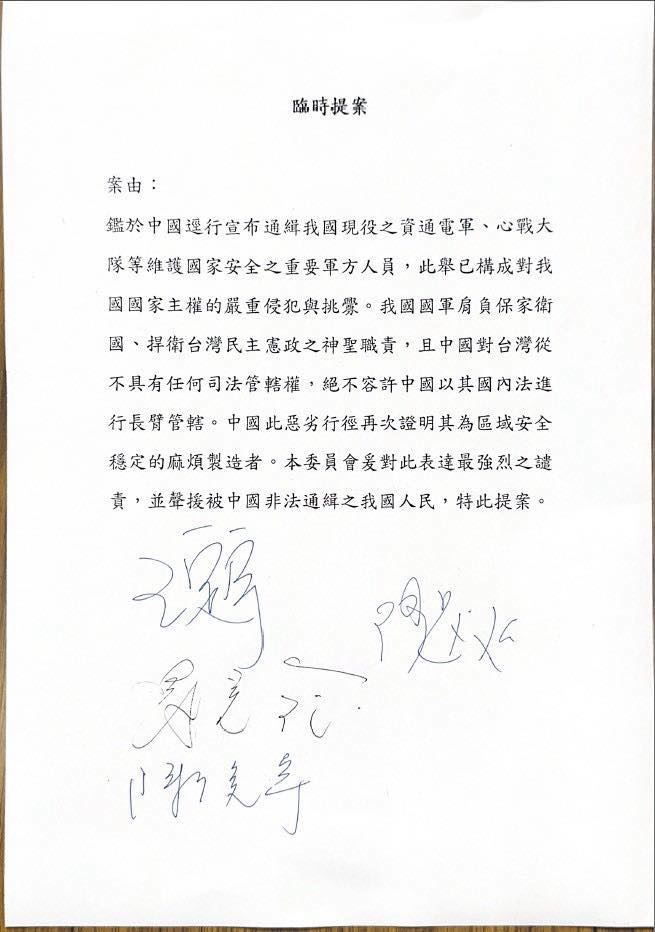 臨時提案
案由：
鑑於中國逕行宣布通緝我國現役之資通電軍、心戰大
隊等維護國家安全之重要軍方人員，此舉已構成對我
國國家主權的嚴重侵犯與挑釁。我國國軍肩負保家衛
國、捍衛台灣民主憲政之神聖職責，且中國對台灣從
不具有任何司法管轄權，絕不容許中國以其國內法進
行長臂管轄。中國此惡劣行徑再次證明其為區域安全
穩定的麻煩製造者。本委員會爰對此表達最強烈之譴
責，並聲援被中國非法通緝之我國人民，特此提案。